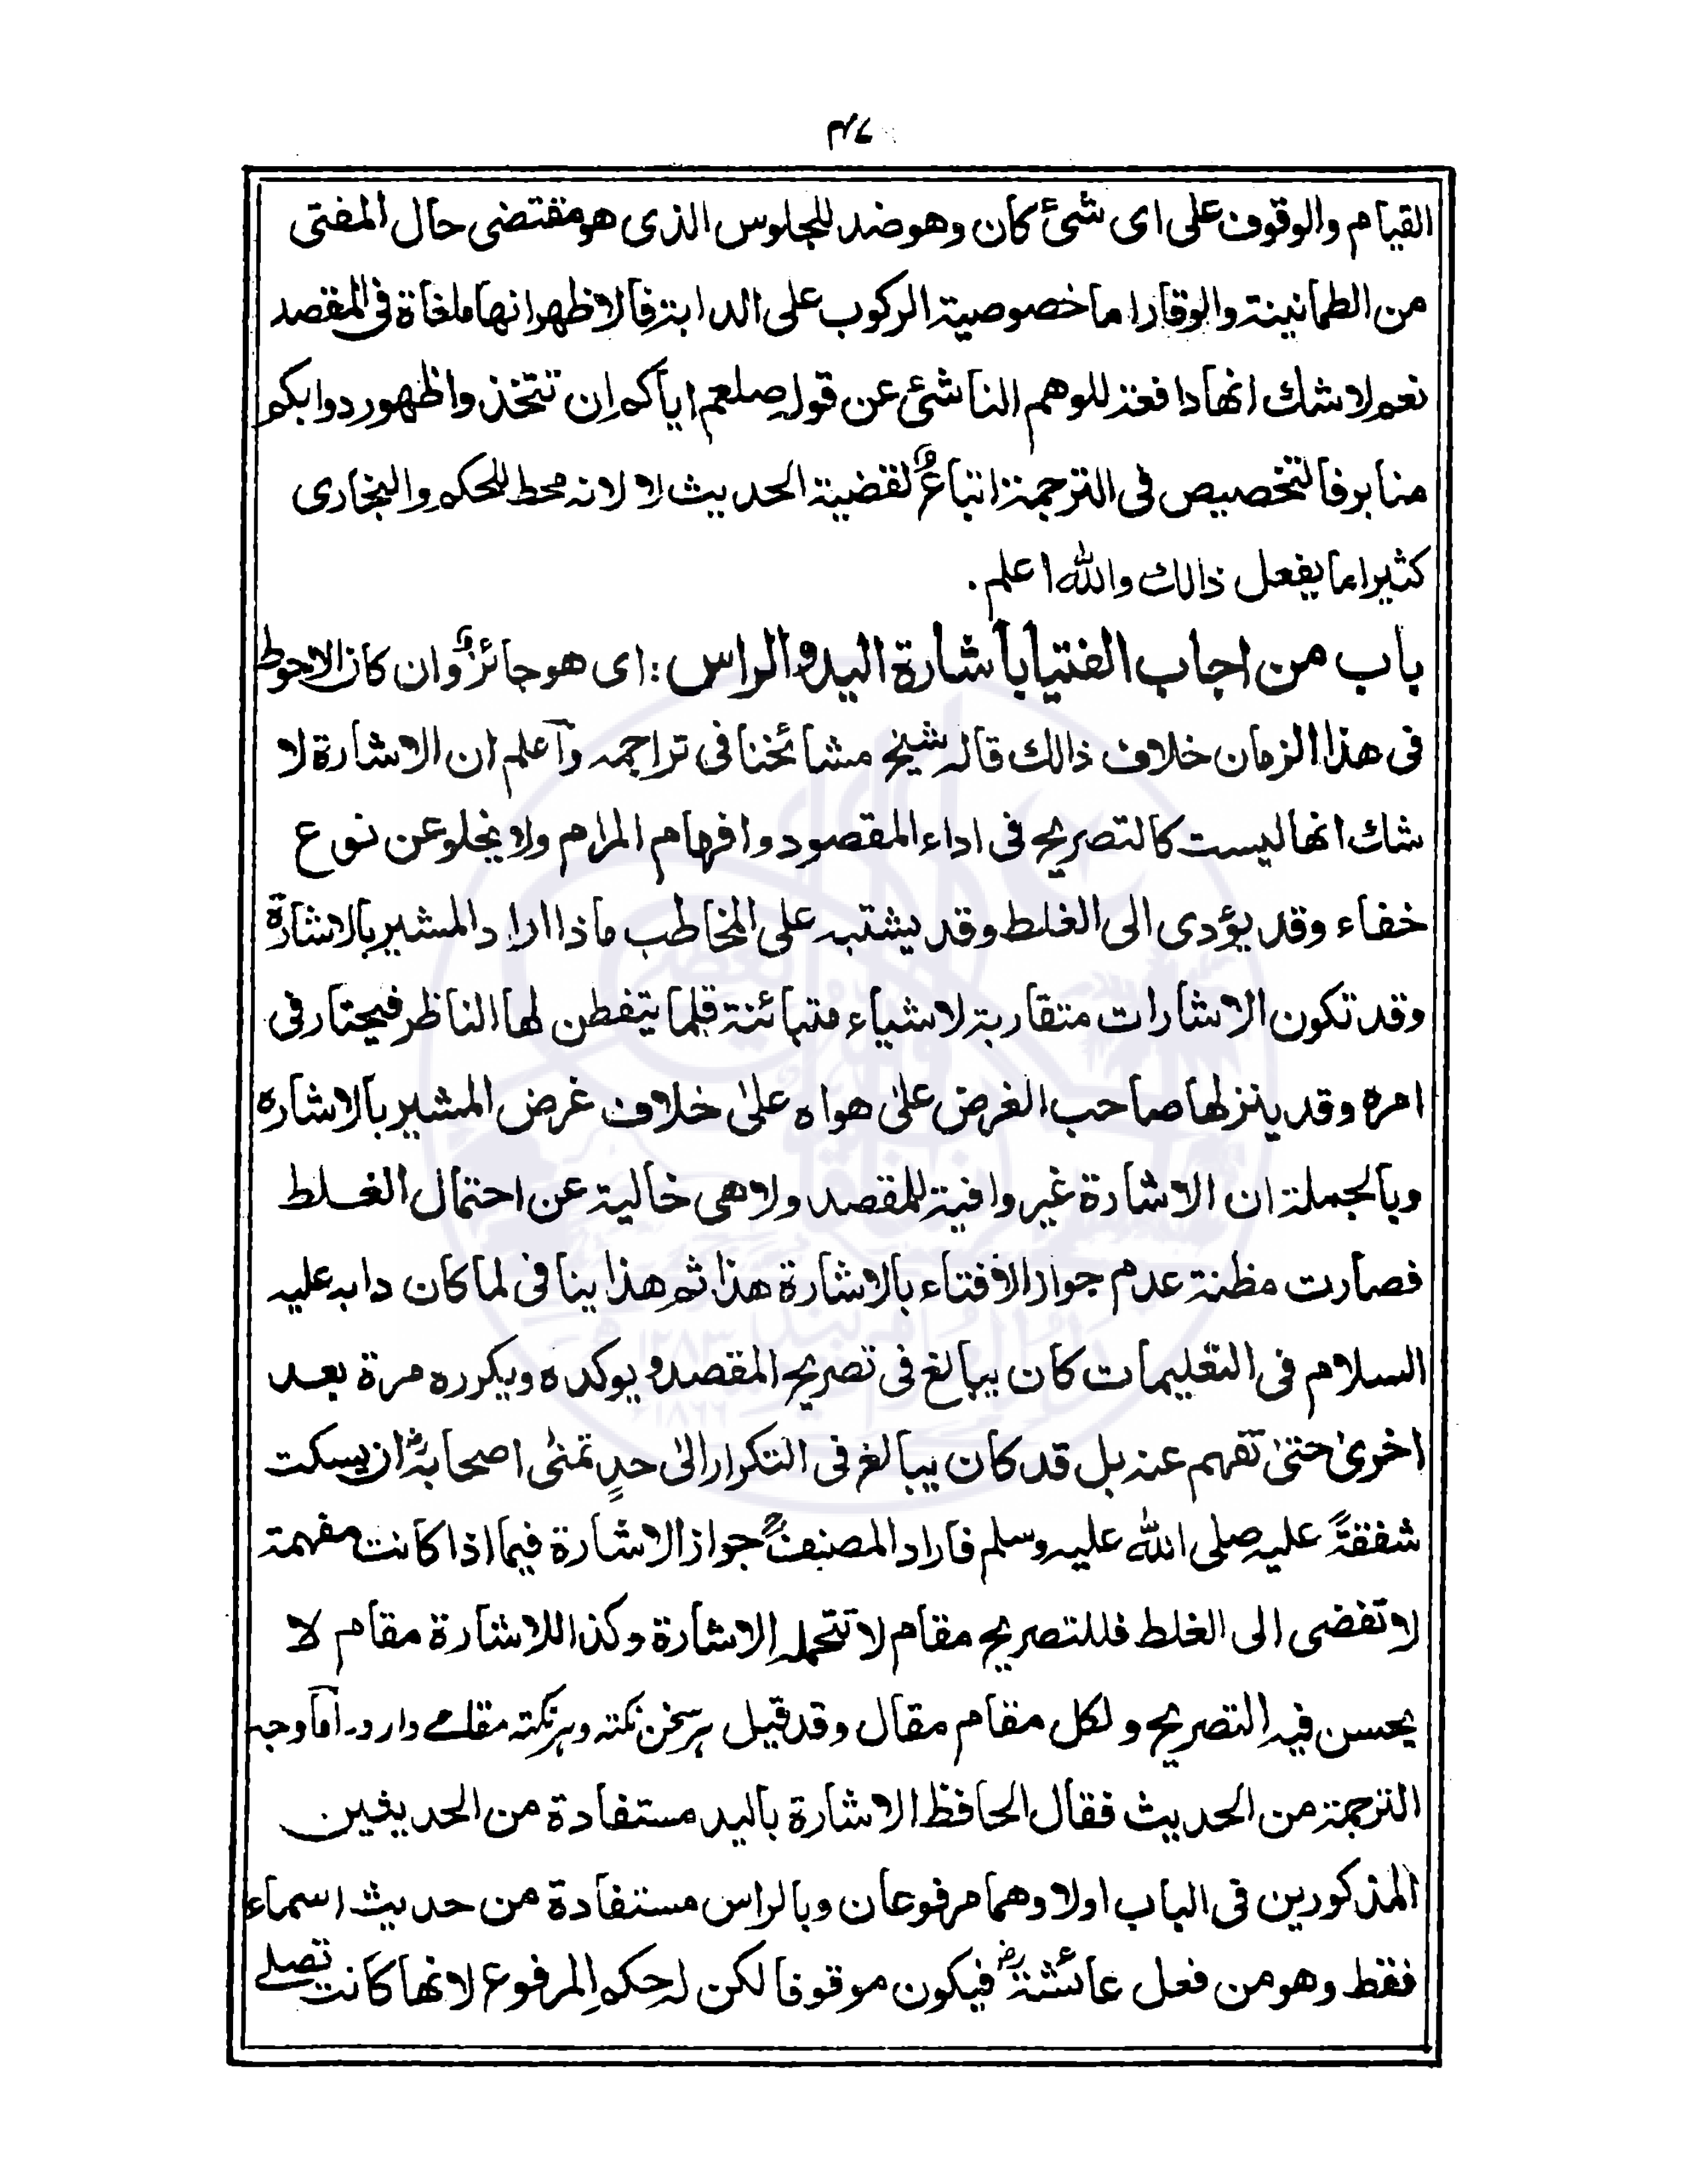 القيام والوقوف على اى شئ كان وهو ضد للجلوس الذى هو مقتضى حال المفتى
من الطمانينة والوقار اما خصوصية الركوب على الدابة فالاظهر انها ملغاة فى المقصد
نعم لا شك انها دافعة للوهم الناشئ عن قوله صلعم اياكم ان تتخذوا ظهور دوابكم
منابر فالتخصيص فى الترجمة اتباعٌ لقضية الحديث لا لانه محط للحكم والبخارى
كثيرا ما يفعل ذالك والله اعلم.
باب من اجاب الفتيا باشارة اليد والراس: اى هو جائز وان كان الاحوط
فى هذا الزمان خلاف ذالك قاله شيخ مشائخنا فى تراجمه وآعلم ان الاشارة لا
شك انها ليست كالتصريح فى اداء المقصود وافهام المرام ولا يخلو عن نوع
خفاء وقد يؤدى الى الغلط وقد يشتبه على المخاطب ماذا اراد المشير بالاشارة
وقد تكون الاشارات متقاربة لاشياء متبائنة قلما يتفطن لها الناظر فيحتار فى
امره وقد ينزلها صاحب الغرض علىٰ هواه علىٰ خلاف غرض المشير بالاشاره
وبالجملة ان الاشارة غير وافية للمقصد ولا هى خالية عن احتمال الغلط
فصارت مظنة عدم جواز الافتاء بالاشارة هذا ثم هذا ينافى لما كان دابه عليه
السلام فى التعليمات كان يبالغ فى تصريح المقصد ويوكده ويكرره مرة بعد
اخرىٰ حتىٰ تفهم عنه بل قد كان يبالغ فى التكرار الىٰ حدٍ تمنىٰ اصحابهؓ ان يسكت
شفقةً عليه صلى الله عليه وسلم فاراد المصنفؒ جواز الاشارة فيما اذا كانت مفهمة
لا تفضى الى الغلط فللتصريح مقام لا تتحمله الاشارة وكذا للاشارة مقام لا
يحسن فيه التصريح ولكل مقام مقال وقد قيل ہر سخن نکتہ وہر نکتہ مقامے دارد۔ آما وجه
الترجمة من الحديث فقال الحافظ الاشارة باليد مستفادة من الحديثين
المذكورين فى الباب اولا وهما مرفوعان وبالراس مستفادة من حديث اسماء
فقط وهو من فعل عائشةؓ فيكون موقوفا لكن له حكم المرفوع لانها كانت تصلے